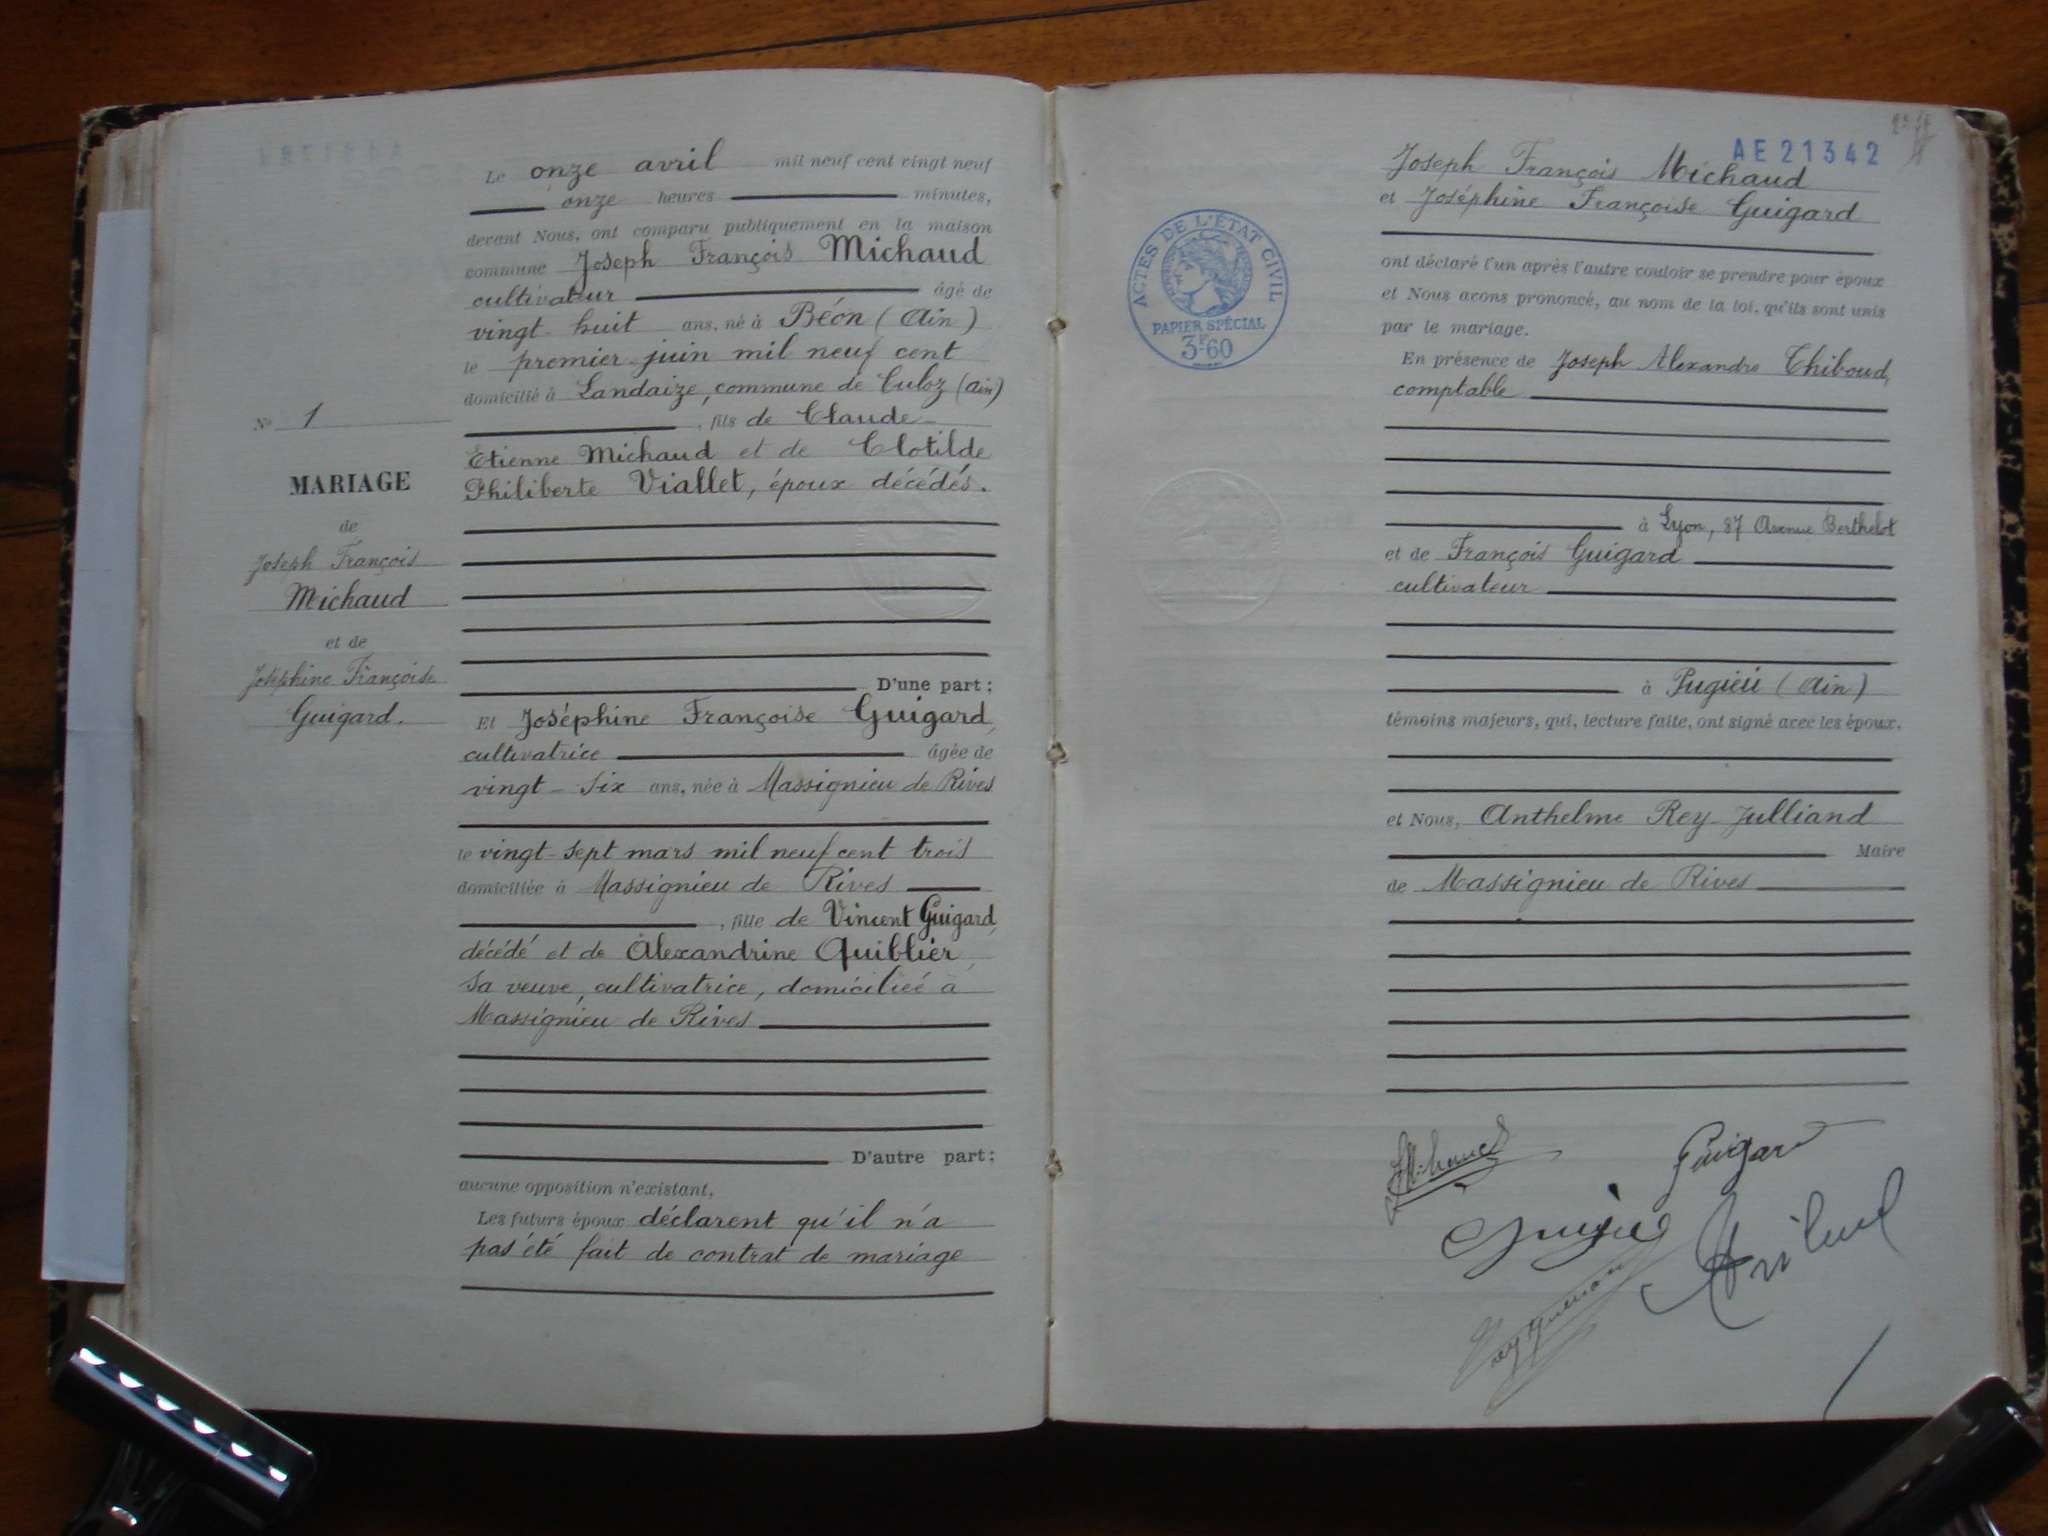 Le onze avril mil neuf cent vingt neuf
onze heures minutes,
devant Nous, ont comparu publiquement en la maison
commune Joseph François Michaud
cultivateur âgé de
vingt-huit ans, né à Béon (Ain)
le premier juin mil neuf cent
domicilié à Landaize, commune de Culoz (Ain)
, fils de Claude
Etienne Michaud et de Clotilde
Philiberte Viallet, époux décédés.
D'une part;
Et Joséphine Françoise Guigard,
cultivatrice âgée de
vingt-six ans, née à Massignieu de Rives
le vingt-sept mars mil neuf cent trois
domiciliée à Massignieu de Rives
, fille de Vincent Guigard,
décédé et de Alexandrine Quiblier,
sa veuve, cultivatrice, domiciliée à
Massignieu de Rives
D'autre part;
aucune opposition n'existant,
Les futurs époux déclarent qu'il n'a
pas été fait de contrat de mariage
N° 1
MARIAGE
de
Joseph François
Michaud
et de
Joséphine Françoise
Guigard.
AE 21342
ACTES DE L'ÉTAT CIVIL
PAPIER SPÉCIAL
3F60
Joseph François Michaud
et Joséphine Françoise Guigard
ont déclaré l'un après l'autre vouloir se prendre pour époux
et Nous avons prononcé, au nom de la loi, qu'ils sont unis
par le mariage.
En présence de Joseph Alexandre Thiboud,
comptable
à Lyon, 87 Avenue Berthelot
et de François Guigard
cultivateur
à Pugieu (Ain)
témoins majeurs, qui, lecture faite, ont signé avec les époux,
et Nous, Anthelme Rey-Julliand
Maire
de Massignieu de Rives
Guigard